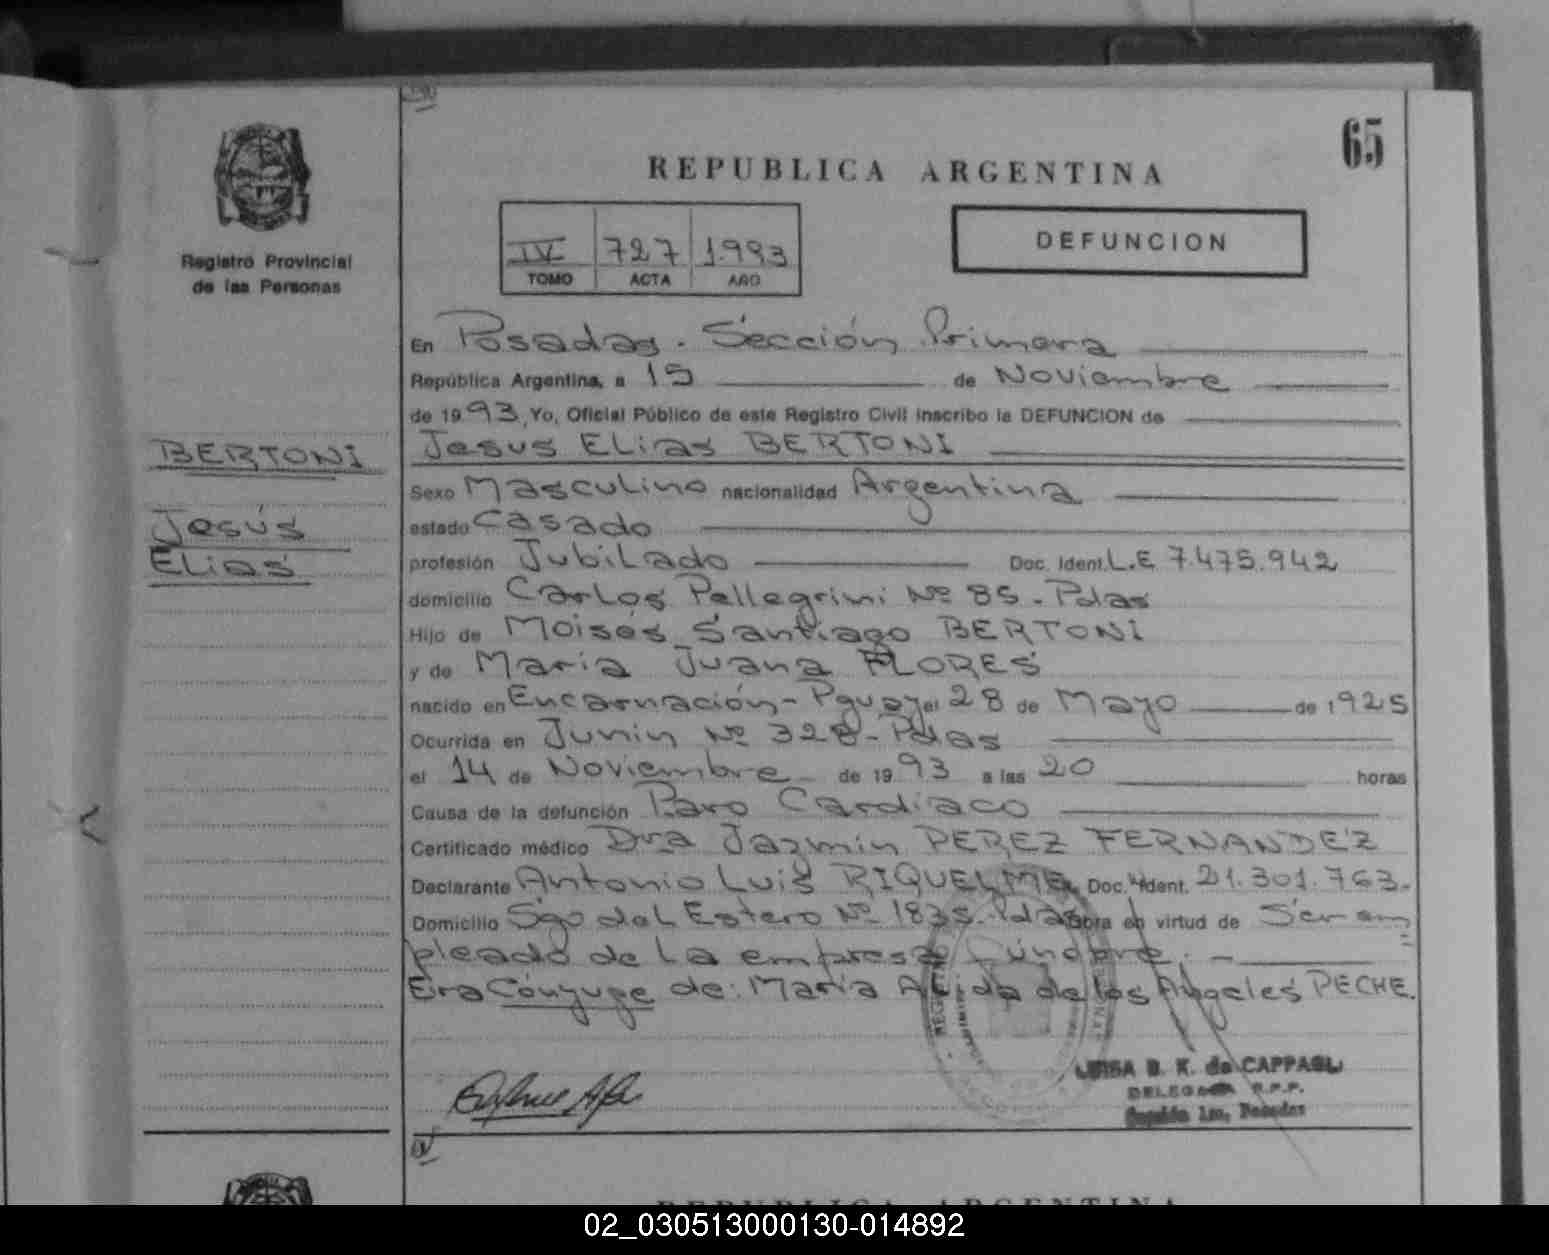 65
REPUBLICA ARGENTINA
Registro Provincial
de las Personas
IV 727 1.993
TOMO ACTA AÑO
DEFUNCION
En Posadas. Sección Primera
República Argentina, a 15 de Noviembre
de 1993, Yo, Oficial Público de este Registro Civil inscribo la DEFUNCION de
BERTONI
Jesús
Elias
Jesus Elias BERTONI
Sexo Masculino nacionalidad Argentina
estado Casado
profesión Jubilado Doc. Ident. L.E 7.475.942
domicilio Carlos Pellegrini Nº 85. Pdas
Hijo de Moisés Santiago BERTONI
y de María Juana FLORES
nacido en Encarnación - Pguay el 28 de Mayo de 1925
Ocurrida en Junin Nº 328 - Pdas
el 14 de Noviembre de 1993 a las 20 horas
Causa de la defunción Paro Cardíaco
Certificado médico Dra Jazmín PEREZ FERNANDEZ
Declarante Antonio Luis RIQUELME Doc. Ident. 21.301.763.
Domicilio Sgo del Estero Nº 1835. Pdas obra en virtud de Ser em
pleado de la empresa fúnebre.
Era Cónyuge de: María Alida de los Angeles PECHE.
LUISA B. K. de CAPPAGLI
DELEGADA R.P.P.
1ra, Posadas
IV
REPUBLICA ARGENTINA
02_030513000130-014892